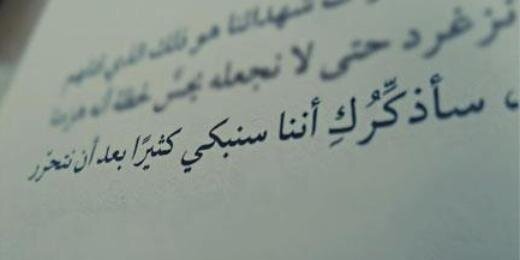 شهدائنا هو ذلك الذي
نزغرد حتى لا نجعله يحسّ لحظة أنه هزمنا
، سأذكِّرُكِ أننا سنبكي كثيرًا بعد أن نتحرّر